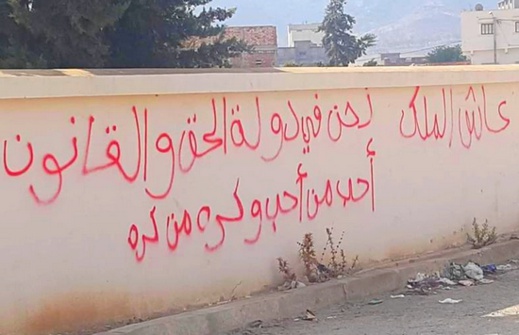 عاش الملك نحن في دولة الحق و القانون
أحب من أحب و كره من كره